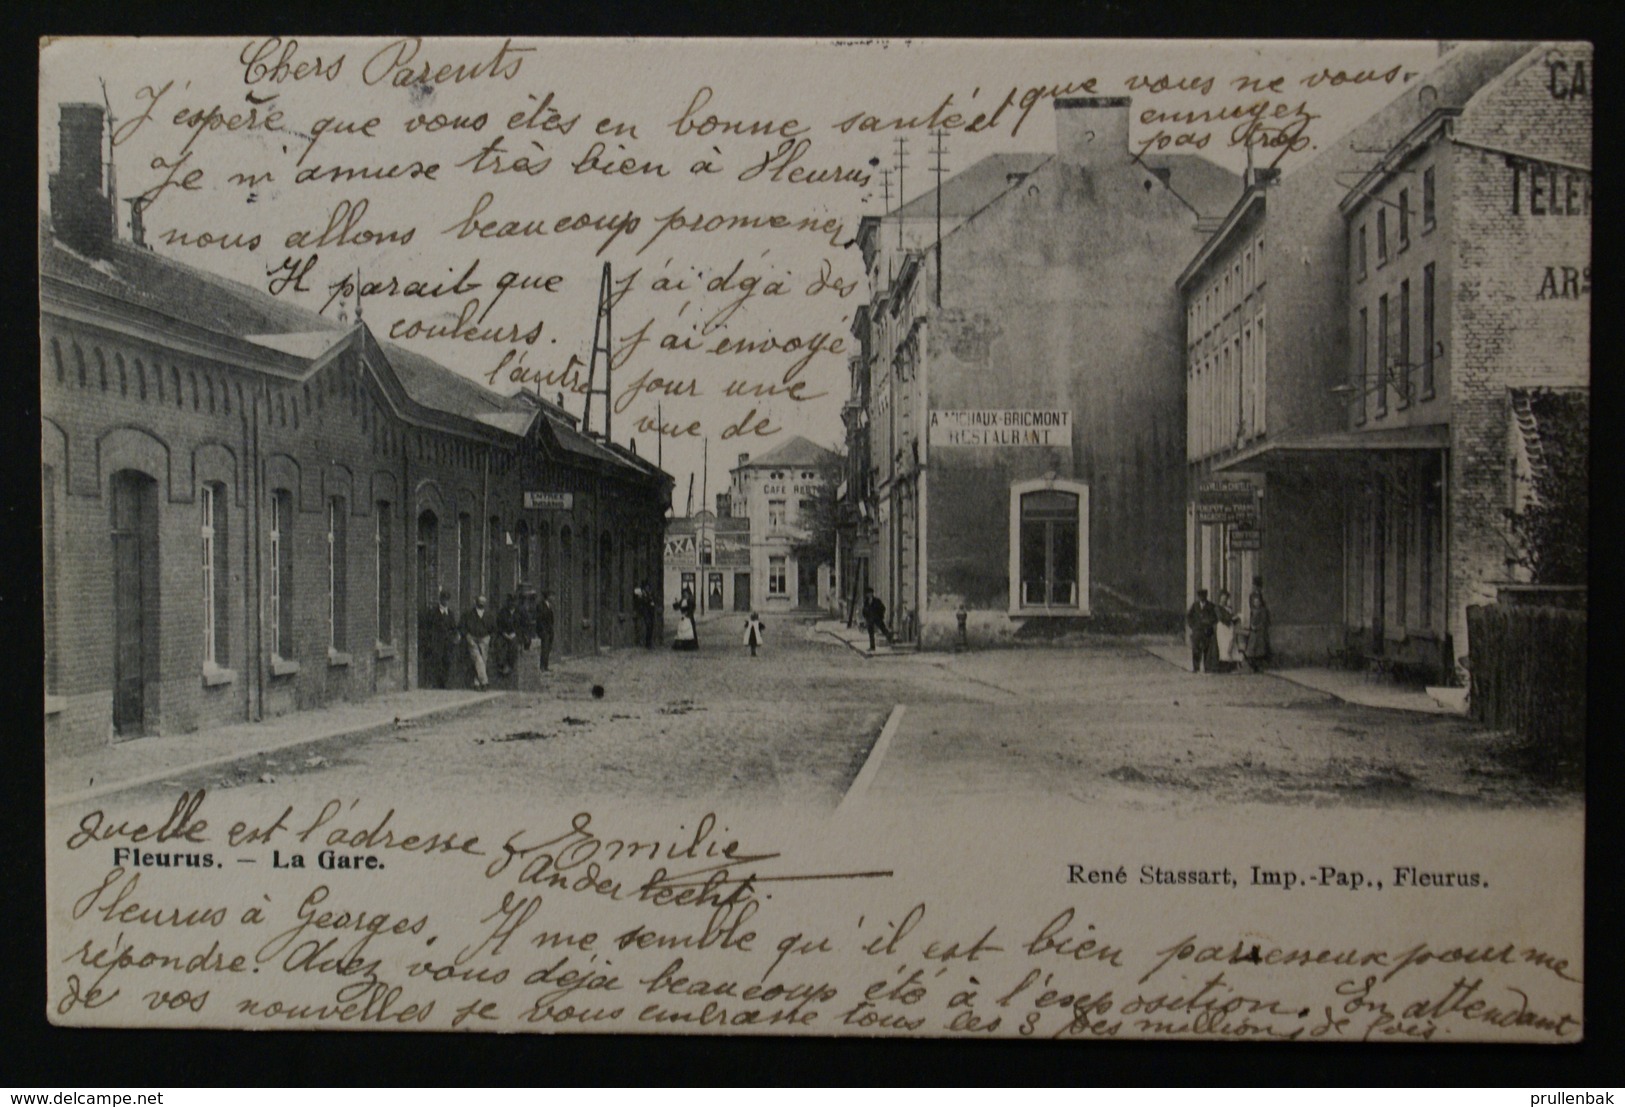 Chers Parents
J'espère que vous êtes en bonne santé et que vous ne vous
ennuyez
pas trop.
Je m'amuse très bien à Fleurus
nous allons beaucoup promener.
Il parait que j'ai déja des
couleurs. j'ai envoyé
l'autre jour une
vue de
CA
TELEP
ARS
A MICHAUX-BRICMONT
RESTAURANT
CAFE REST
ENTRÉE
AXA
quelle est l'adresse Emilie
Anderlecht.
Fleurus. — La Gare.
René Stassart, Imp.-Pap., Fleurus.
Fleurus à Georges. Il me semble qu'il est bien paresseux pour me
répondre. Avez vous déja beaucoup été à l'exposition. En attendant
de vos nouvelles je vous embrasse tous les 3 des millions de fois.
delcampe.net
prullenbak